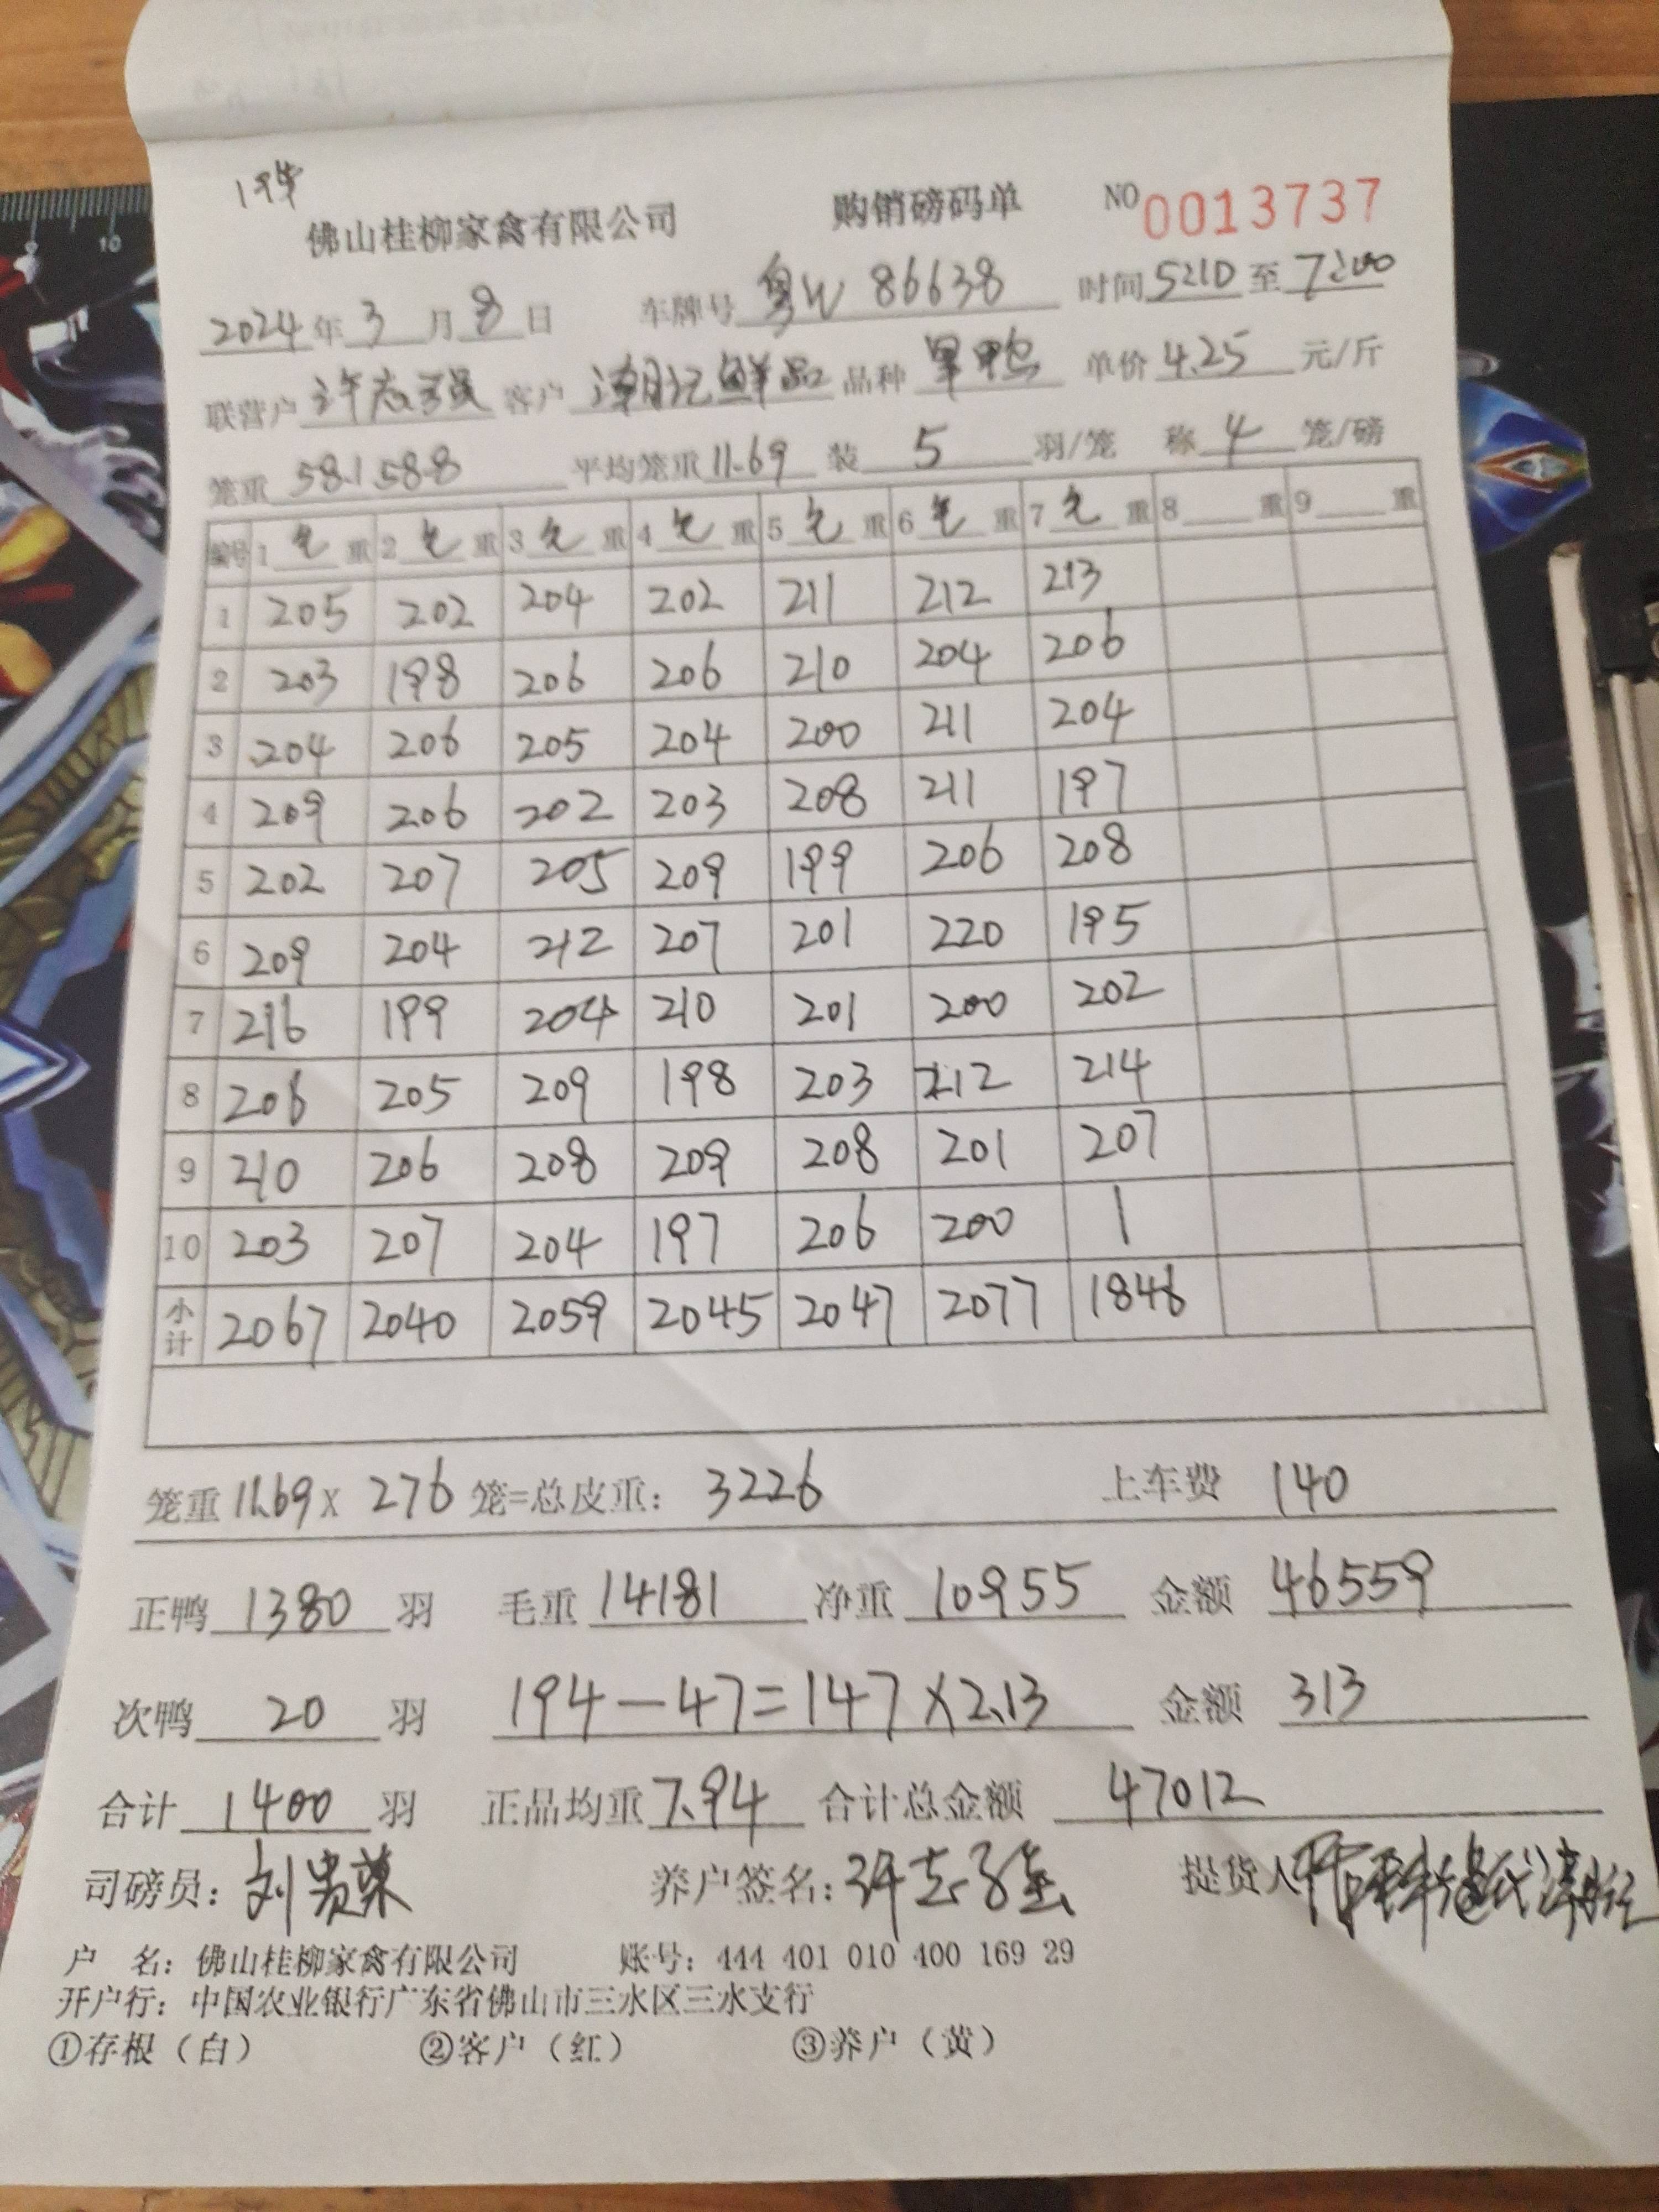 19车
佛山桂柳家禽有限公司 购销磅码单 NO 0013737
2024年3月8日 车牌号 粤W 86638 时间 5:10 至 7:00
联营户 许志强 客户 潮记鲜品 品种 单价 4.25 元/斤
笼重 58.1 58.8 平均笼重 11.69 装 5 羽/笼 称 4 笼/磅
编号 1 毛 重 2 毛 重 3 毛 重 4 毛 重 5 毛 重 6 毛 重 7 毛 重 8 重 9 重
1 205 202 204 202 211 212 213
2 203 198 206 206 210 204 206
3 204 206 205 204 200 211 204
4 209 206 202 203 208 211 197
5 202 207 205 209 199 206 208
6 209 204 212 207 201 220 195
7 216 199 204 210 201 200 202
8 206 205 209 198 203 212 214
9 210 206 208 209 208 201 207
10 203 207 204 197 206 200 1
小计 2067 2040 2059 2045 2047 2077 1846
笼重 11.69 x 276 笼=总皮重: 3226 上车费 140
正鸭 1380 羽 毛重 14181 净重 10955 金额 46559
次鸭 20 羽 194-47=147×2.13 金额 313
合计 1400 羽 正品均重 7.94 合计总金额 47012
司磅员: 刘贵荣 养户签名: 许志强 提货人
户 名: 佛山桂柳家禽有限公司 账号: 444 401 010 400 169 29
开户行: 中国农业银行广东省佛山市三水区三水支行
①存根（白） ②客户（红） ③养户（黄）
9 10